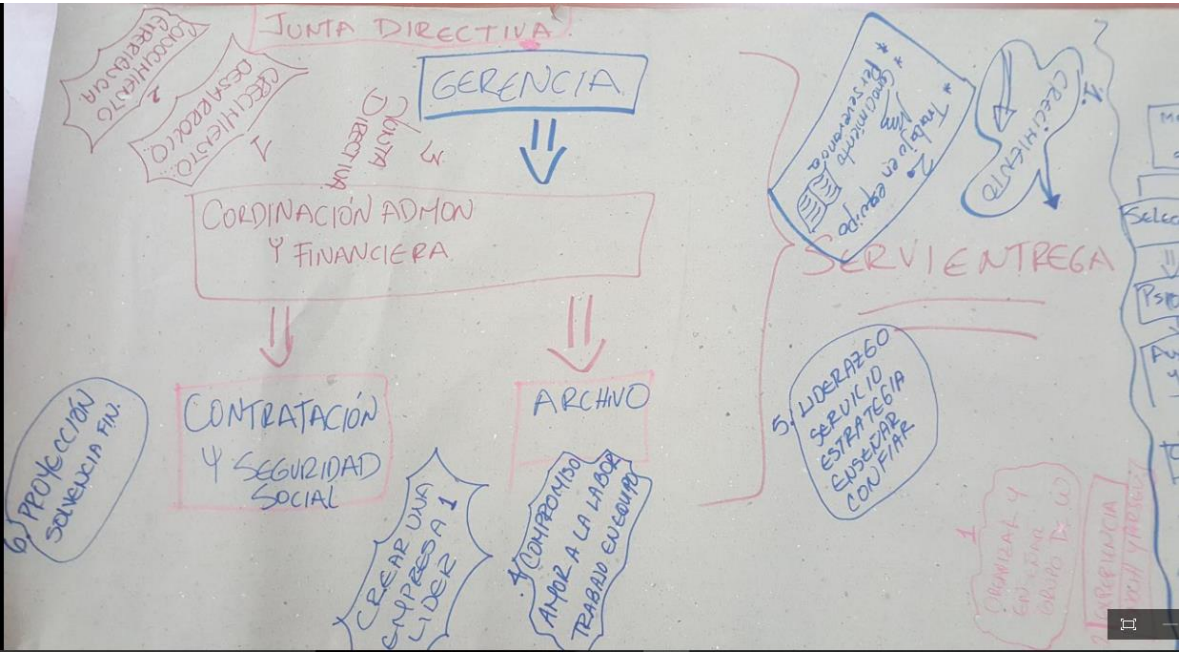 JUNTA DIRECTIVA.
GERENCIA.
CONOCIMIENTO
EXPERIENCIA
2
1
CRECIMIENTO.
DESARROLLO.
3.
JUNTA
DIRECTIVA
CORDINACIÓN ADMON
Y FINANCIERA.
CONTRATACIÓN
Y SEGURIDAD
SOCIAL
ARCHIVO
6.
PROYECCIÓN
SOLVENCIA FIN.
CREAR UNA
EMPRESA 1
LIDER
4. COMPROMISO
AMOR A LA LABOR
TRABAJO EN EQUIPO
2.
* Trabajo en equipo
* Conocimiento
* Perseverancia
1.
CRECIMIENTO
SERVIENTREGA
5. LIDERAZGO
SERVICIO
ESTRATEGIA
ENSEÑAR
CONFIAR
1
ORGANIZAR Y
GRUPO
2. EXPERIENCIA
Selec